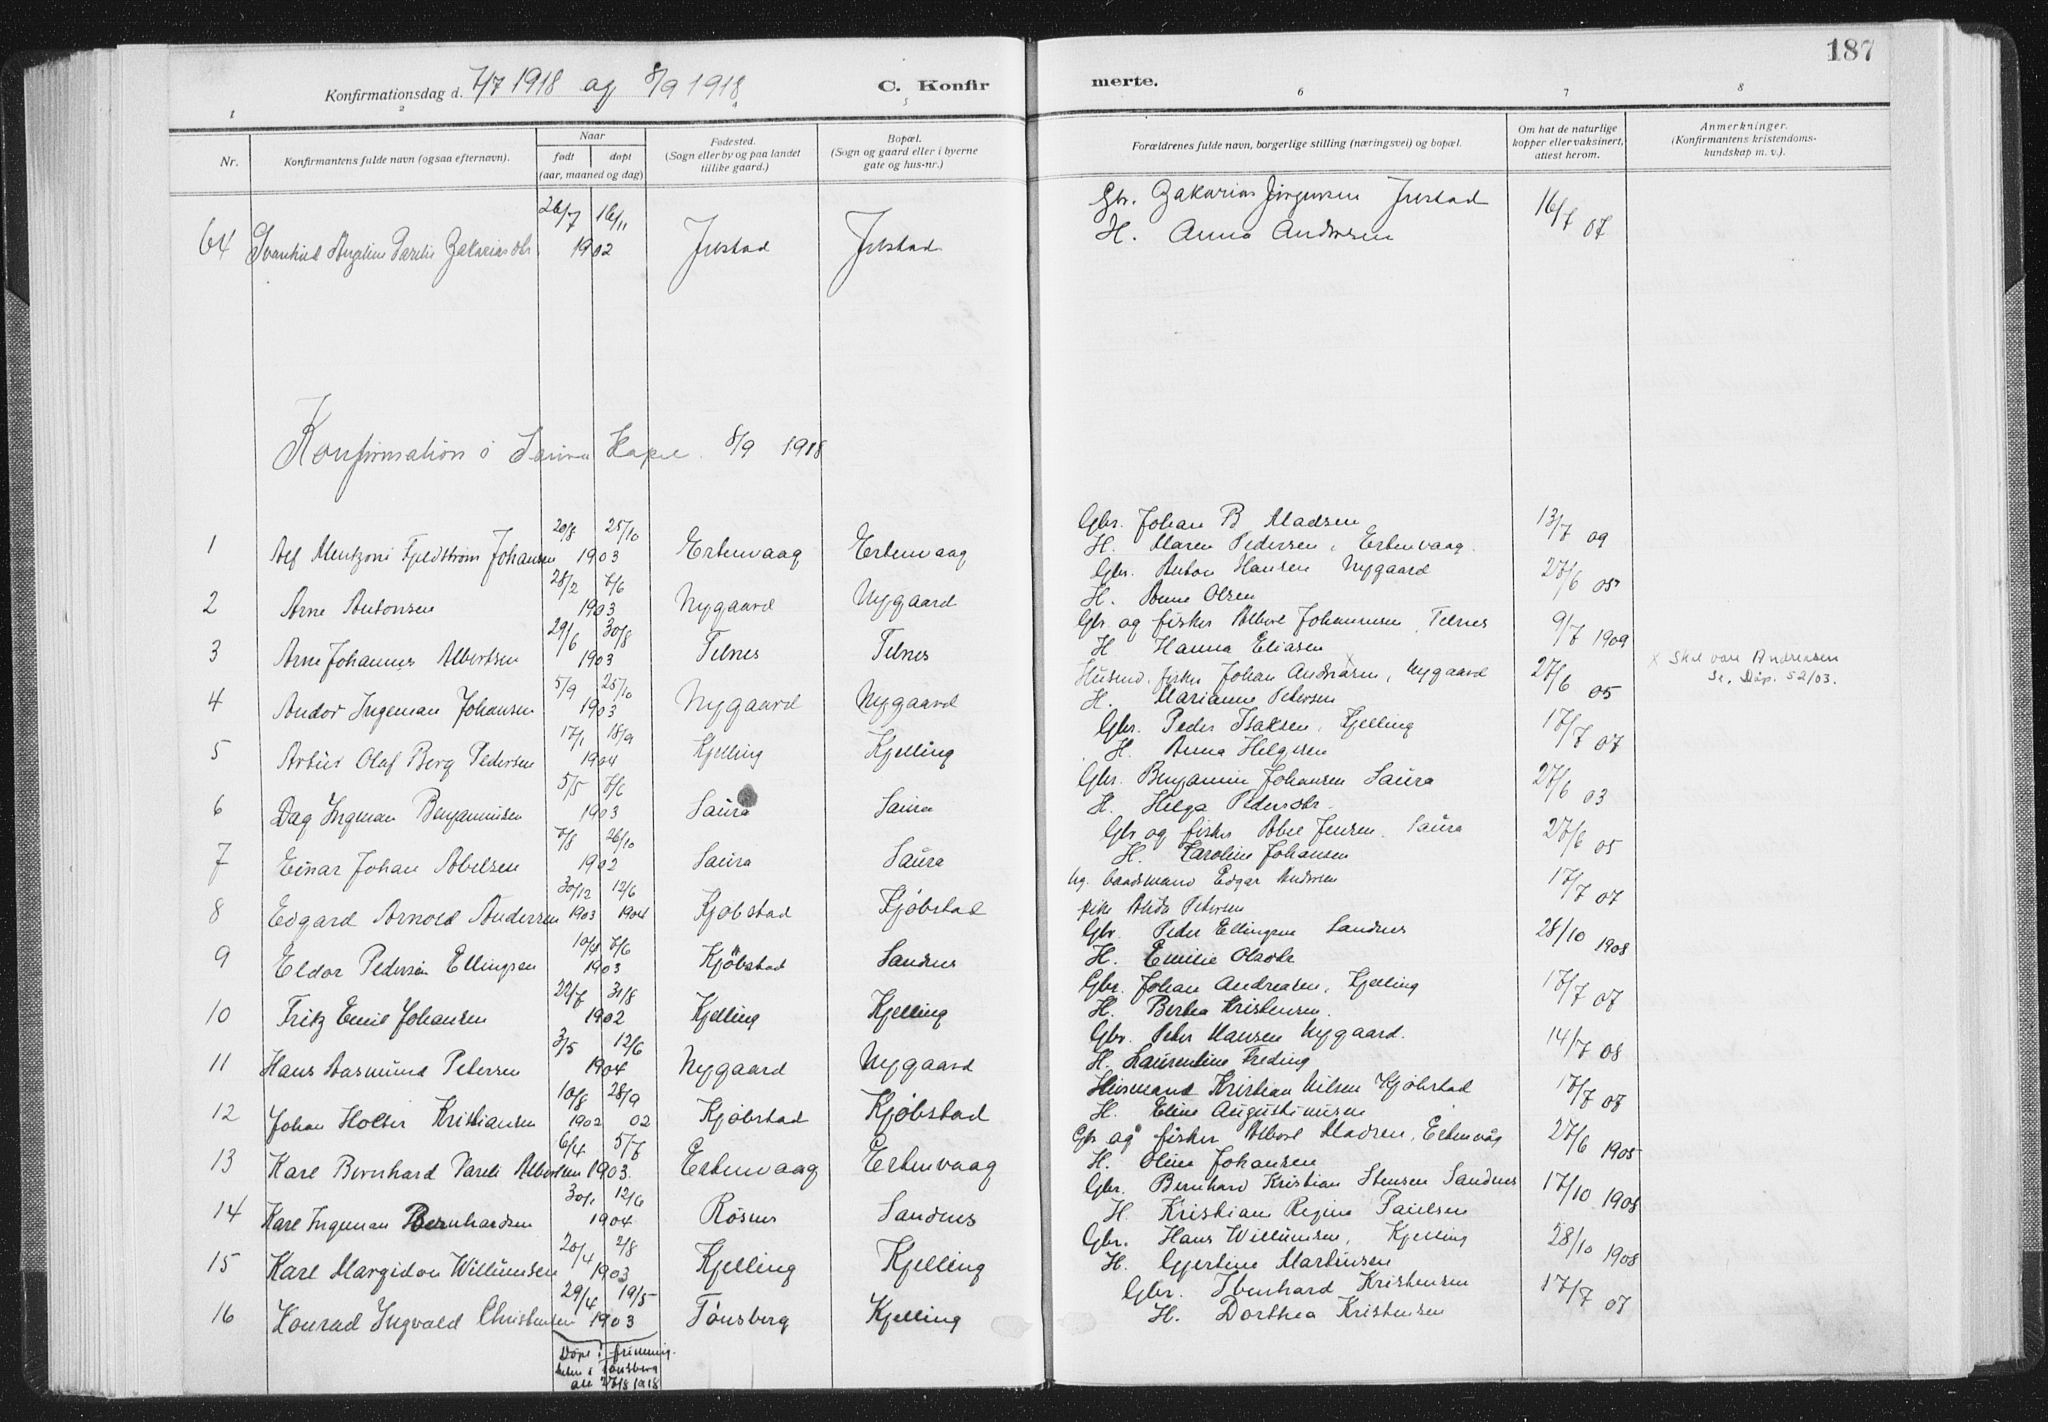 187
Konfirmationsdag d. 7/7 1918 og 8/9 1918
C. Konfirmerte.
1 2 4 5 6 7 8
Nr.
Konfirmantens fulde navn (ogsaa efternavn).
Naar
født døpt
(aar, maaned og dag)
Fødested.
(Sogn eller by og paa landet
tillike gaard.)
Bopæl.
(Sogn og gaard eller i byerne
gate og hus-nr.)
Forældrenes fulde navn, borgerlige stilling (næringsvei) og bopæl.
Om hat de naturlige
kopper eller vaksinert,
attest herom.
Anmerkninger.
(Konfirmantens kristendoms-
kundskap m. v.).
64 Angeline Zakariasdtr. 26/7 16/11 1902 Jnstad Jnstad Gbr. Zakarias Jørgensen Jnstad
H. Anna Andersen 16/7 07
Konfirmation i Saura Kapel 8/9 1918
1 Alf Mentzoni Fjeldstrøm Johansen 20/8 25/10 1903 Ertenvaag Ertenvaag Gbr. Johan B Madsen
H. Maren Pedersen, Ertenvaag. 13/7 09
2 Arne Antonsen 28/2 7/6 1903 Nygaard Nygaard Gbr. Anton Hansen Nygaard
H. Anne Olsen 27/6 05
3 Arne Johannes Albertsen 29/6 30/8 1903 Telnes Telnes Gbr og fisker Albert Johannesen, Telnes
H Hanna Eliasen 9/7 1909
4 Andor Ingeman Johansen 5/9 25/10 1903 Nygaard Nygaard Husmd. fisker Johan Andersen x, Nygaard
H. Marianne Petersen 27/6 05
x Skal være Andreasen
Se. Døp. 52/03.
5 Artur Olaf Berg Pedersen 17/1 18/9 1904 Kjelling Kjelling Gbr. Peder Isaksen, Kjelling
H. Anna Helgesen 17/7 07
6 Dag Ingman Benjaminsen 5/5 7/6 1903 Saura Saura Gbr. Benjamin Johansen Saura
H. Helga Pedersdtr. 27/6 03
7 Einar Johan Abelsen 7/8 26/10 1902 Saura Saura Gbr og fisker Abel Jensen. Saura
H. Karoline Johansen 27/6 05
8 Edgard Arnold Andersen 30/12 1903 12/6 1904 Kjøbstad Kjøbstad Ug. baadsmand Edgar Andersen
pike Anda Petersen 17/7 07
9 Eldor Pedersen Ellingsen 10/4 7/6 1903 Kjøbstad Sandnes Gbr. Peder Ellingsen Sandnes
H. Emilie Olsdtr 28/10 1908
10 Fritz Emil Johansen 22/7 31/8 1902 Kjelling Kjelling Gbr. Johan Andreasen, Kjelling
H. Berthea Kristensen. 17/7 07
11 Hans Aasmund Petersen 3/5 12/6 1904 Nygaard Nygaard Gbr. Peter Hansen Nygaard.
H. Laurentine Freding 14/7 08
12 Johan Holter Kristiansen 10/8 1902 28/9 02 Kjøbstad Kjøbstad Husmand Kristian Nilsen Kjøbstad
H. Eline Augustinusen 17/7 07
13 Karl Bernhard Pareli Albertsen 6/4 5/7 1903. Ertenvaag Ertenvaag Gbr og fisker Albert Madsen, Ertenvåg
H. Oline Johansen 27/6 1905
14 Karl Ingeman Bernhardsen 30/1 12/6 1904 Røsnes Sandnes Gbr. Bernhard Kristian Stensen Sandnes
H. Kristiane Regine Paulsen 17/10 1908
15 Karl Margidon Willumsen 20/4 2/8 1903 Kjelling Kjelling Gbr. Hans Willumsen, Kjelling
H. Gjertine Martinsen 28/10 1908
16 Konrad Ingvald Christensen 29/4 19/5 1903 Tønsberg Kjelling Gbr. Ibenhard Kristensen
H. Dorthea Kristensen 17/7 07
Døpt i frimenig-
heten i Tønsberg
27/8 1918